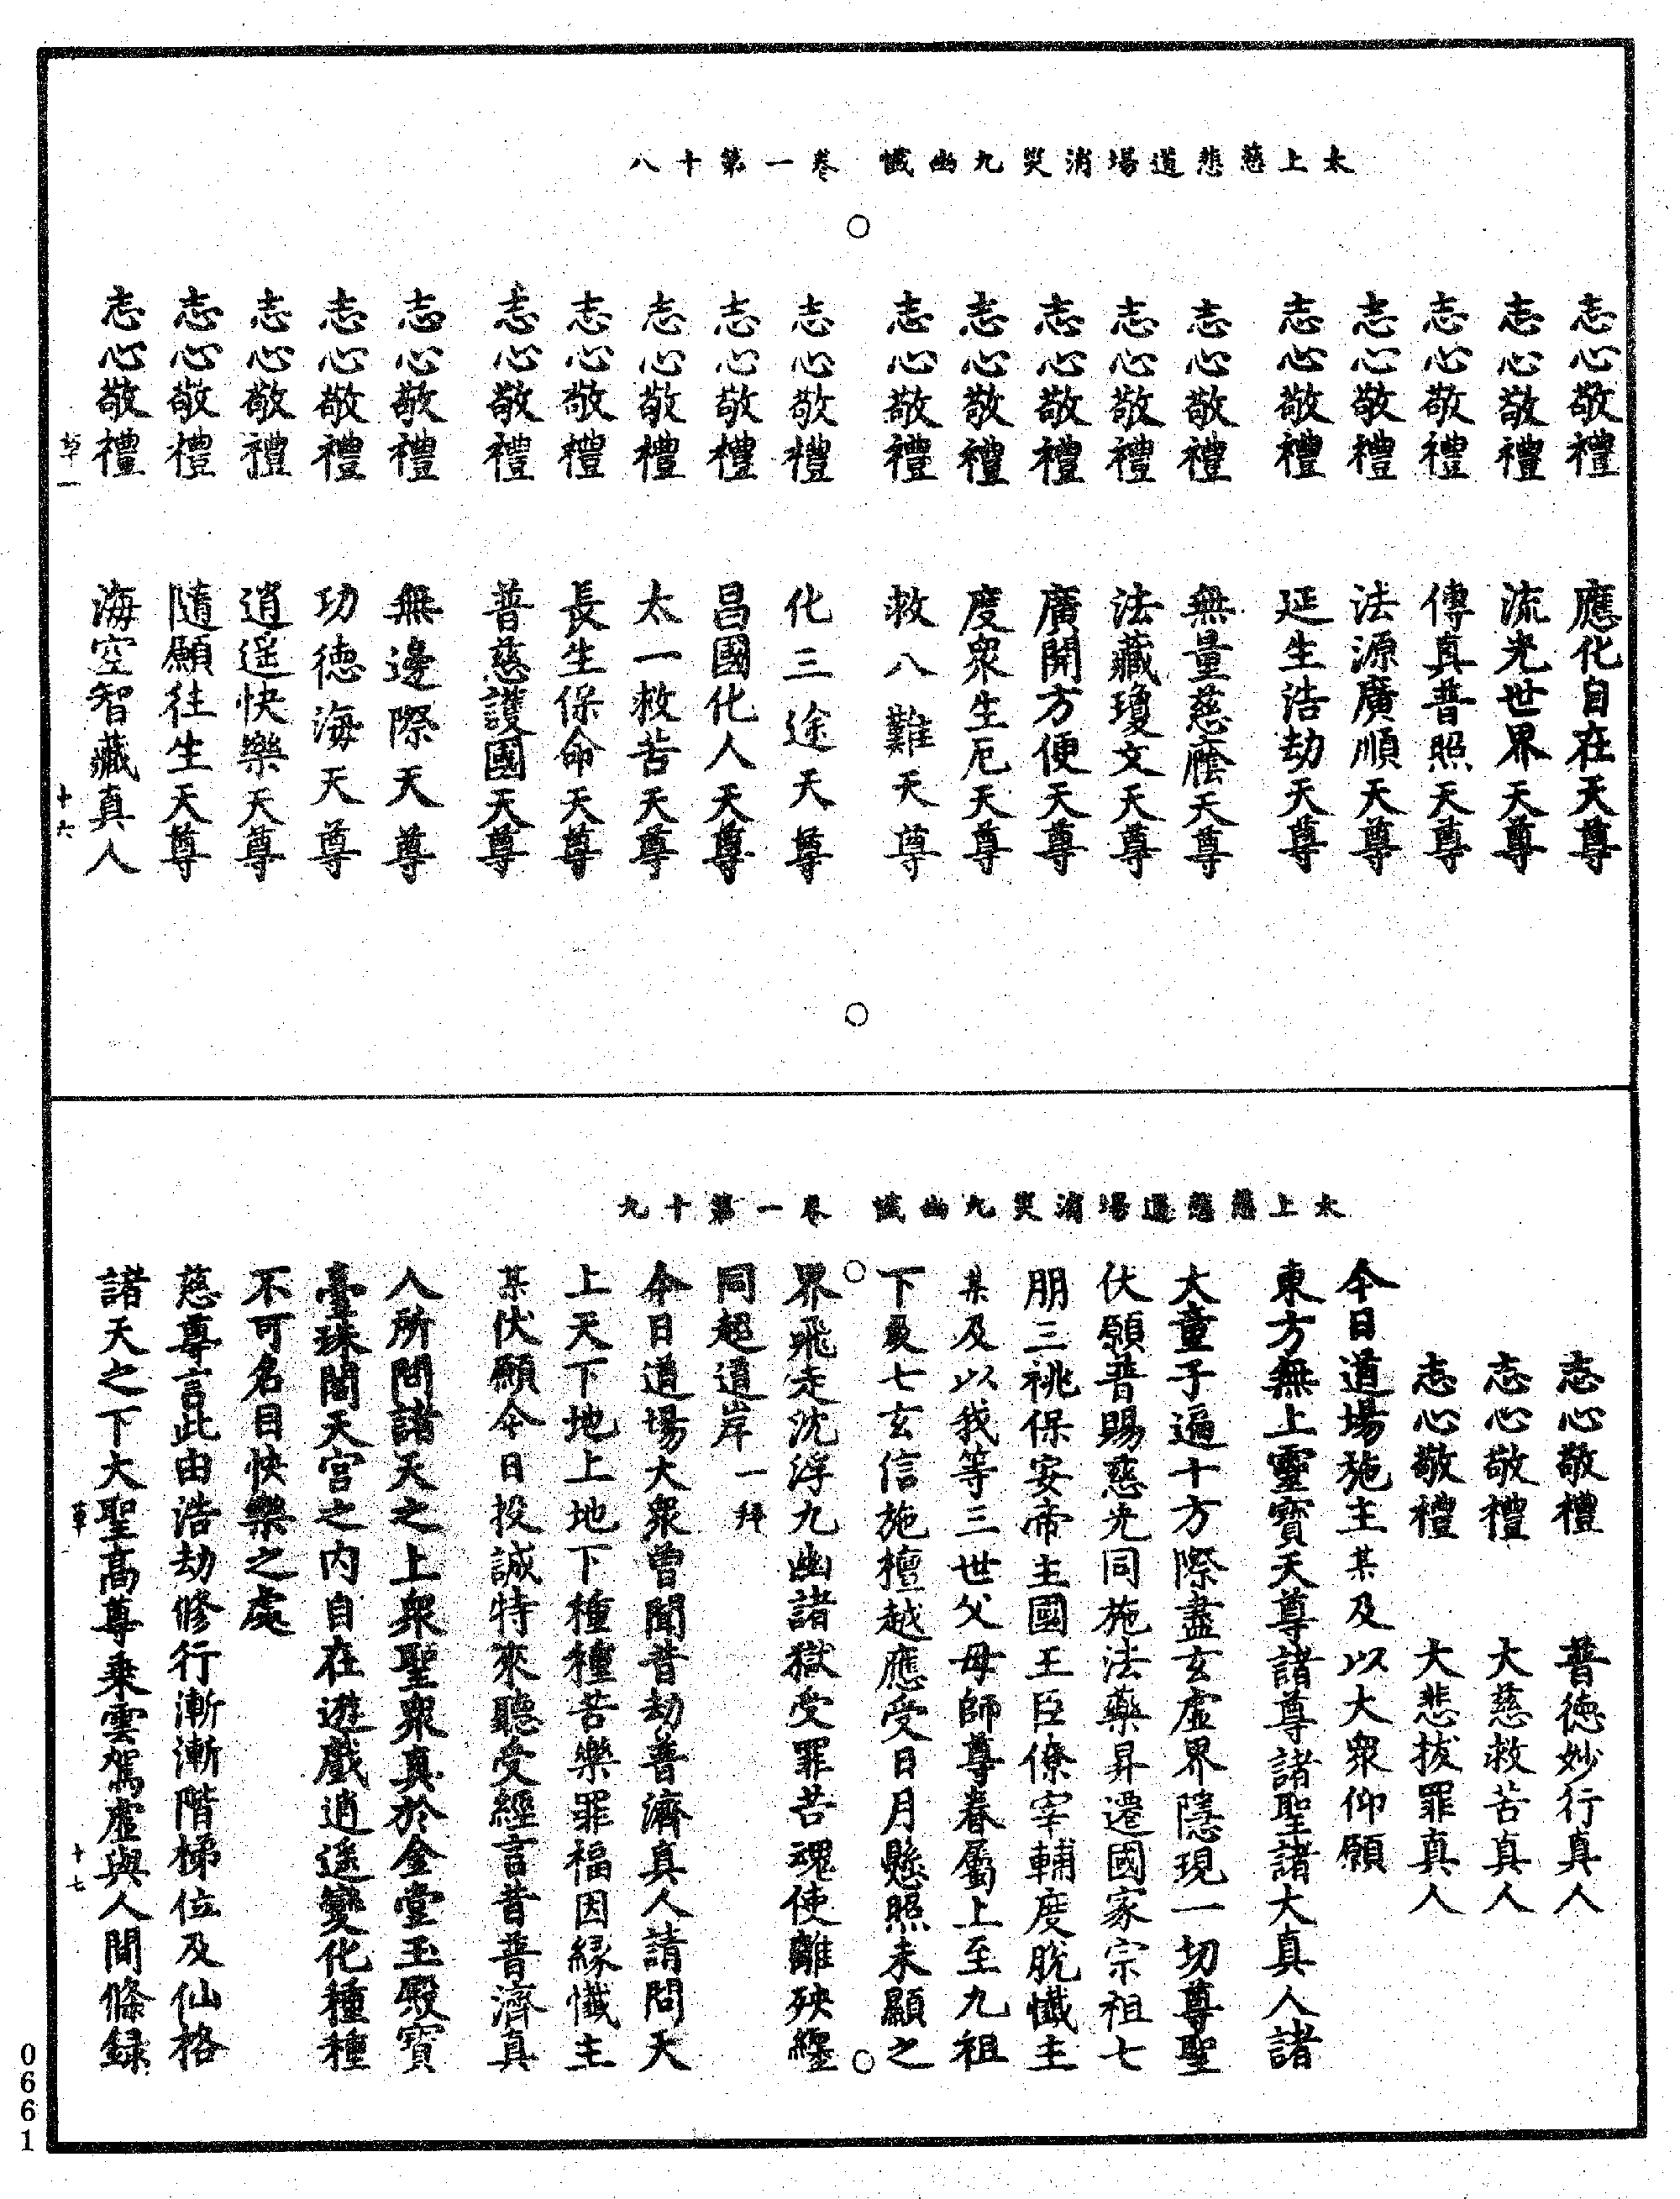 太上慈悲道場消災九幽懺　卷一第十八
志心敬禮　應化自在天尊
志心敬禮　流光世界天尊
志心敬禮　傳真普照天尊
志心敬禮　法源廣順天尊
志心敬禮　延生浩劫天尊
志心敬禮　無量慈廕天尊
志心敬禮　法藏瓊文天尊
志心敬禮　廣開方便天尊
志心敬禮　度衆生厄天尊
志心敬禮　救八難天尊
志心敬禮　化三途天尊
志心敬禮　昌國化人天尊
志心敬禮　太一救苦天尊
志心敬禮　長生保命天尊
志心敬禮　普慈護國天尊
志心敬禮　無邊際天尊
志心敬禮　功德海天尊
志心敬禮　逍遥快樂天尊
志心敬禮　隨願往生天尊
志心敬禮　海空智藏真人
草一　十六
太上慈悲道場消災九幽懺　卷一第十九
志心敬禮　普德妙行真人
志心敬禮　大慈救苦真人
志心敬禮　大悲拔罪真人
今日道場施主某及以大衆仰願
東方無上靈寶天尊諸尊諸聖諸大真人諸
大童子遍十方際盡玄虛界隱現一切尊聖
伏願普賜慈光同施法藥昇遷國家宗祖七
朋三祧保安帝主國王臣僚宰輔度脫懺主
某及以我等三世父母師尊眷屬上至九祖
下及七玄信施檀越應受日月懸照未顯之
界飛走沈浮九幽諸獄受罪苦魂使離殃纒
同超道岸一拜
今日道場大衆曾聞昔劫普濟真人請問天
上天下地上地下種種苦樂罪福因緣懺主
某伏願今日投誠特來聽受經言昔普濟真
人所問諸天之上衆聖衆真於金堂玉殿寶
臺珠閣天宫之内自在遊戲逍遥變化種種
不可名目快樂之處
慈尊言此由浩劫修行漸漸階梯位及仙格
諸天之下大聖高尊乘雲駕虛與人間條録
草一　十七
0661